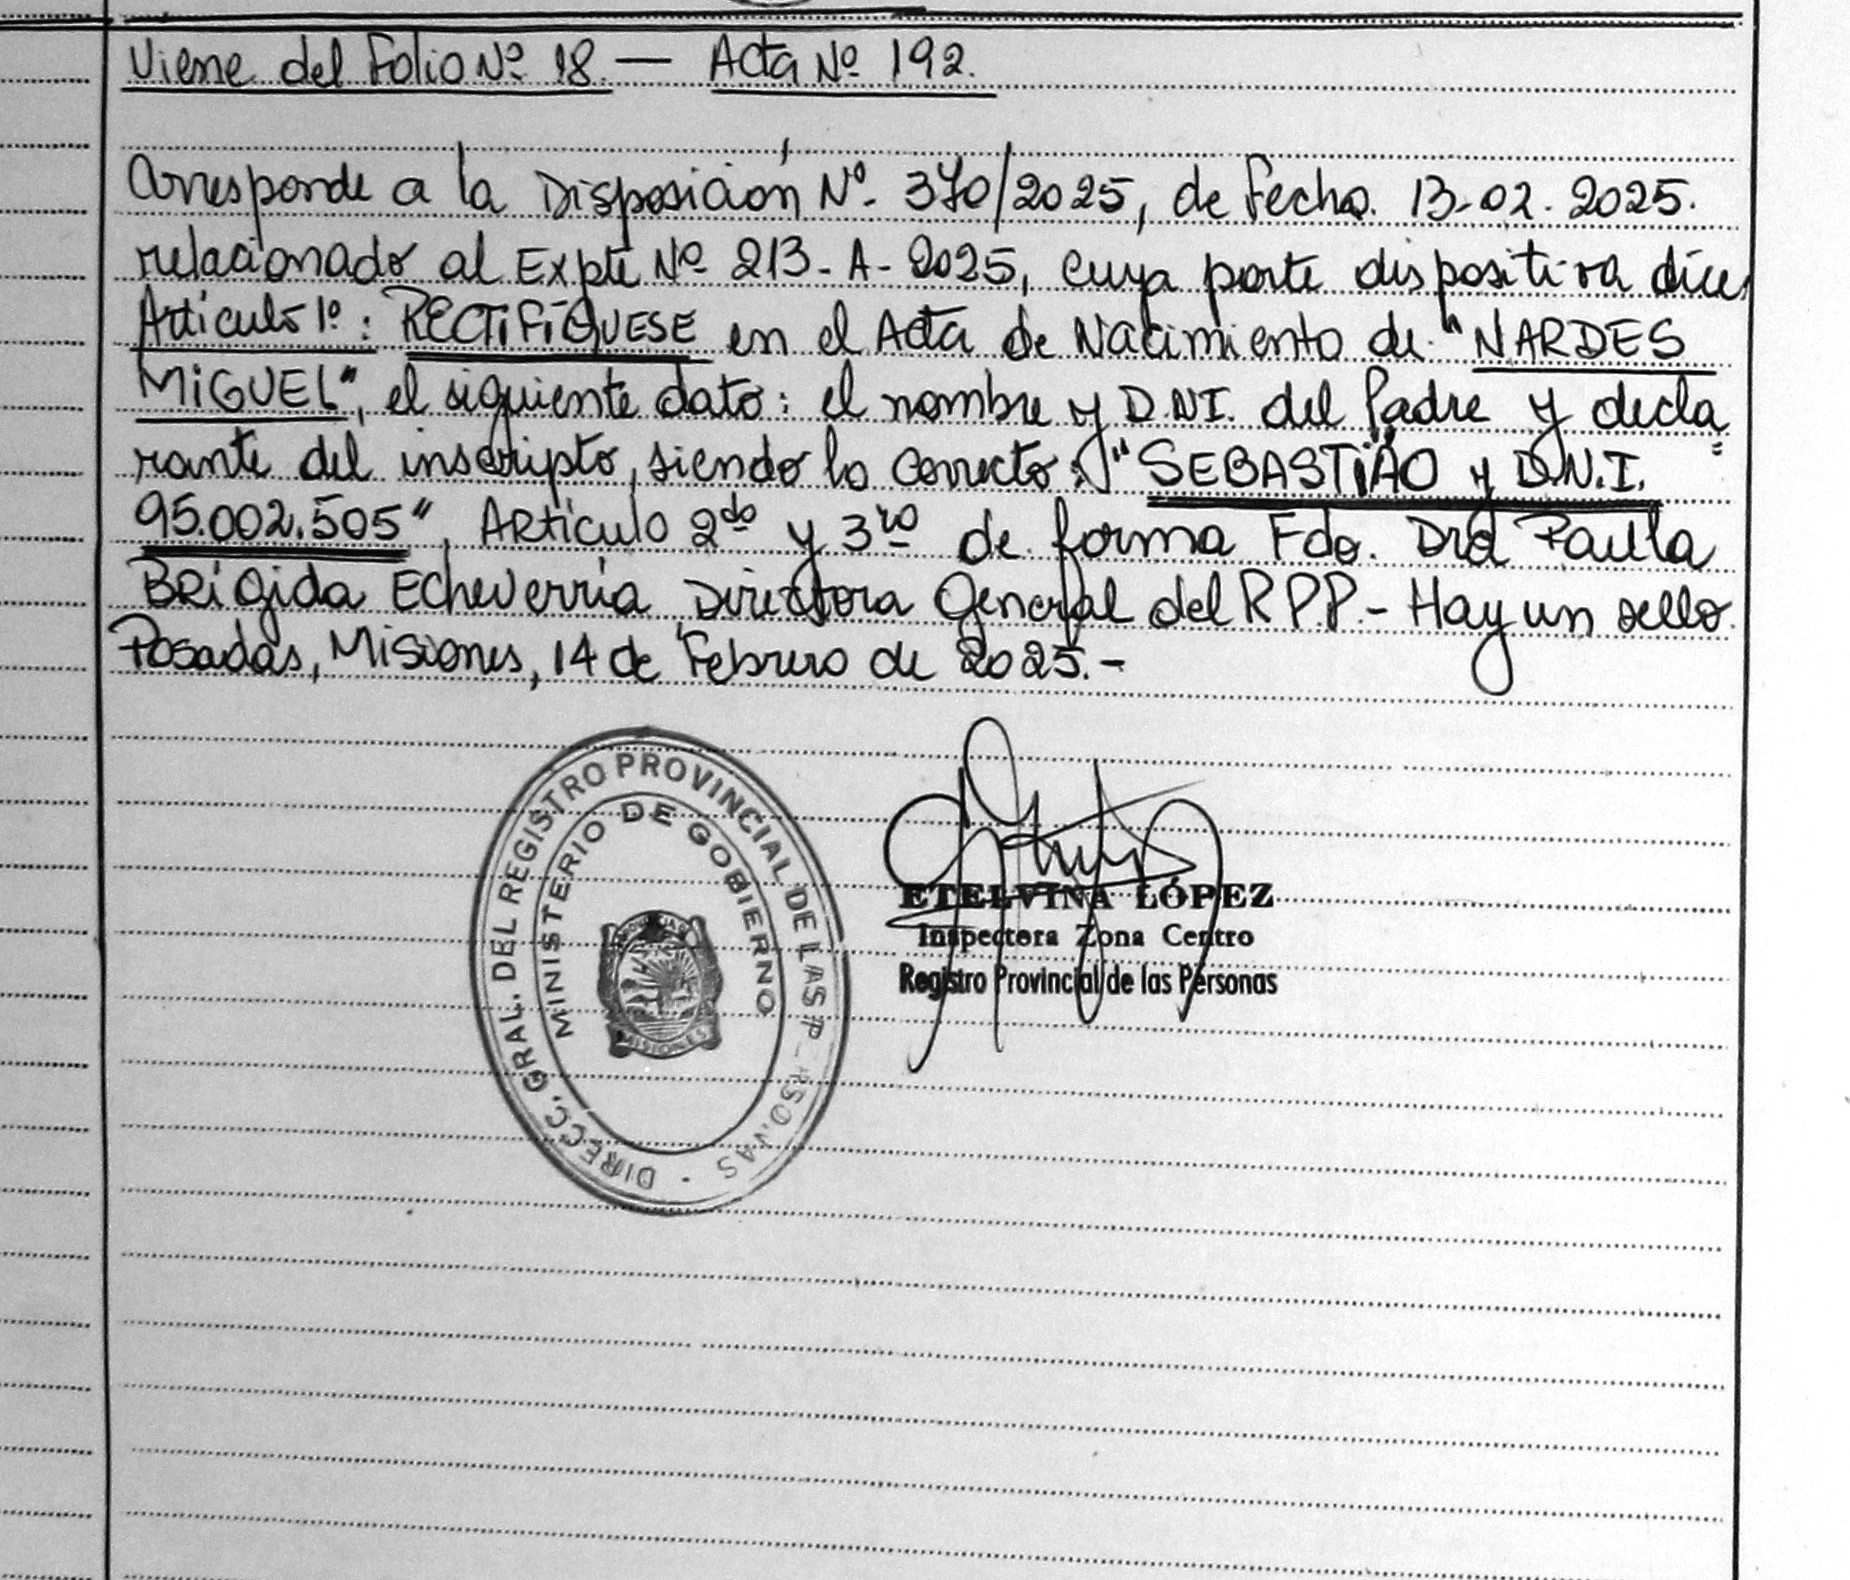 Viene del Folio Nº 18 — Acta Nº 192.
Corresponde a la Disposición Nº 370/2025, de Fecha 13-02-2025.
relacionado al Expte Nº 213-A-2025, cuya parte dispositiva dice,
Artículo 1º: RECTIFÍQUESE en el Acta de Nacimiento de "NARDES
MIGUEL", el siguiente dato: el nombre y D.N.I. del Padre y decla
rante del inscripto, siendo lo correcto: "SEBASTIÃO y D.N.I.
95.002.505", Artículo 2do y 3ro de forma Fdo. Dra Paula
Brígida Echeverría Directora General del RPP.- Hay un sello.
Posadas, Misiones, 14 de Febrero de 2025.-
DIRECC. GRAL. DEL REGISTRO PROVINCIAL DE LAS PERSONAS
MINISTERIO DE GOBIERNO
MISIONES
ETELVINA LÓPEZ
Inspectora Zona Centro
Registro Provincial de las Personas